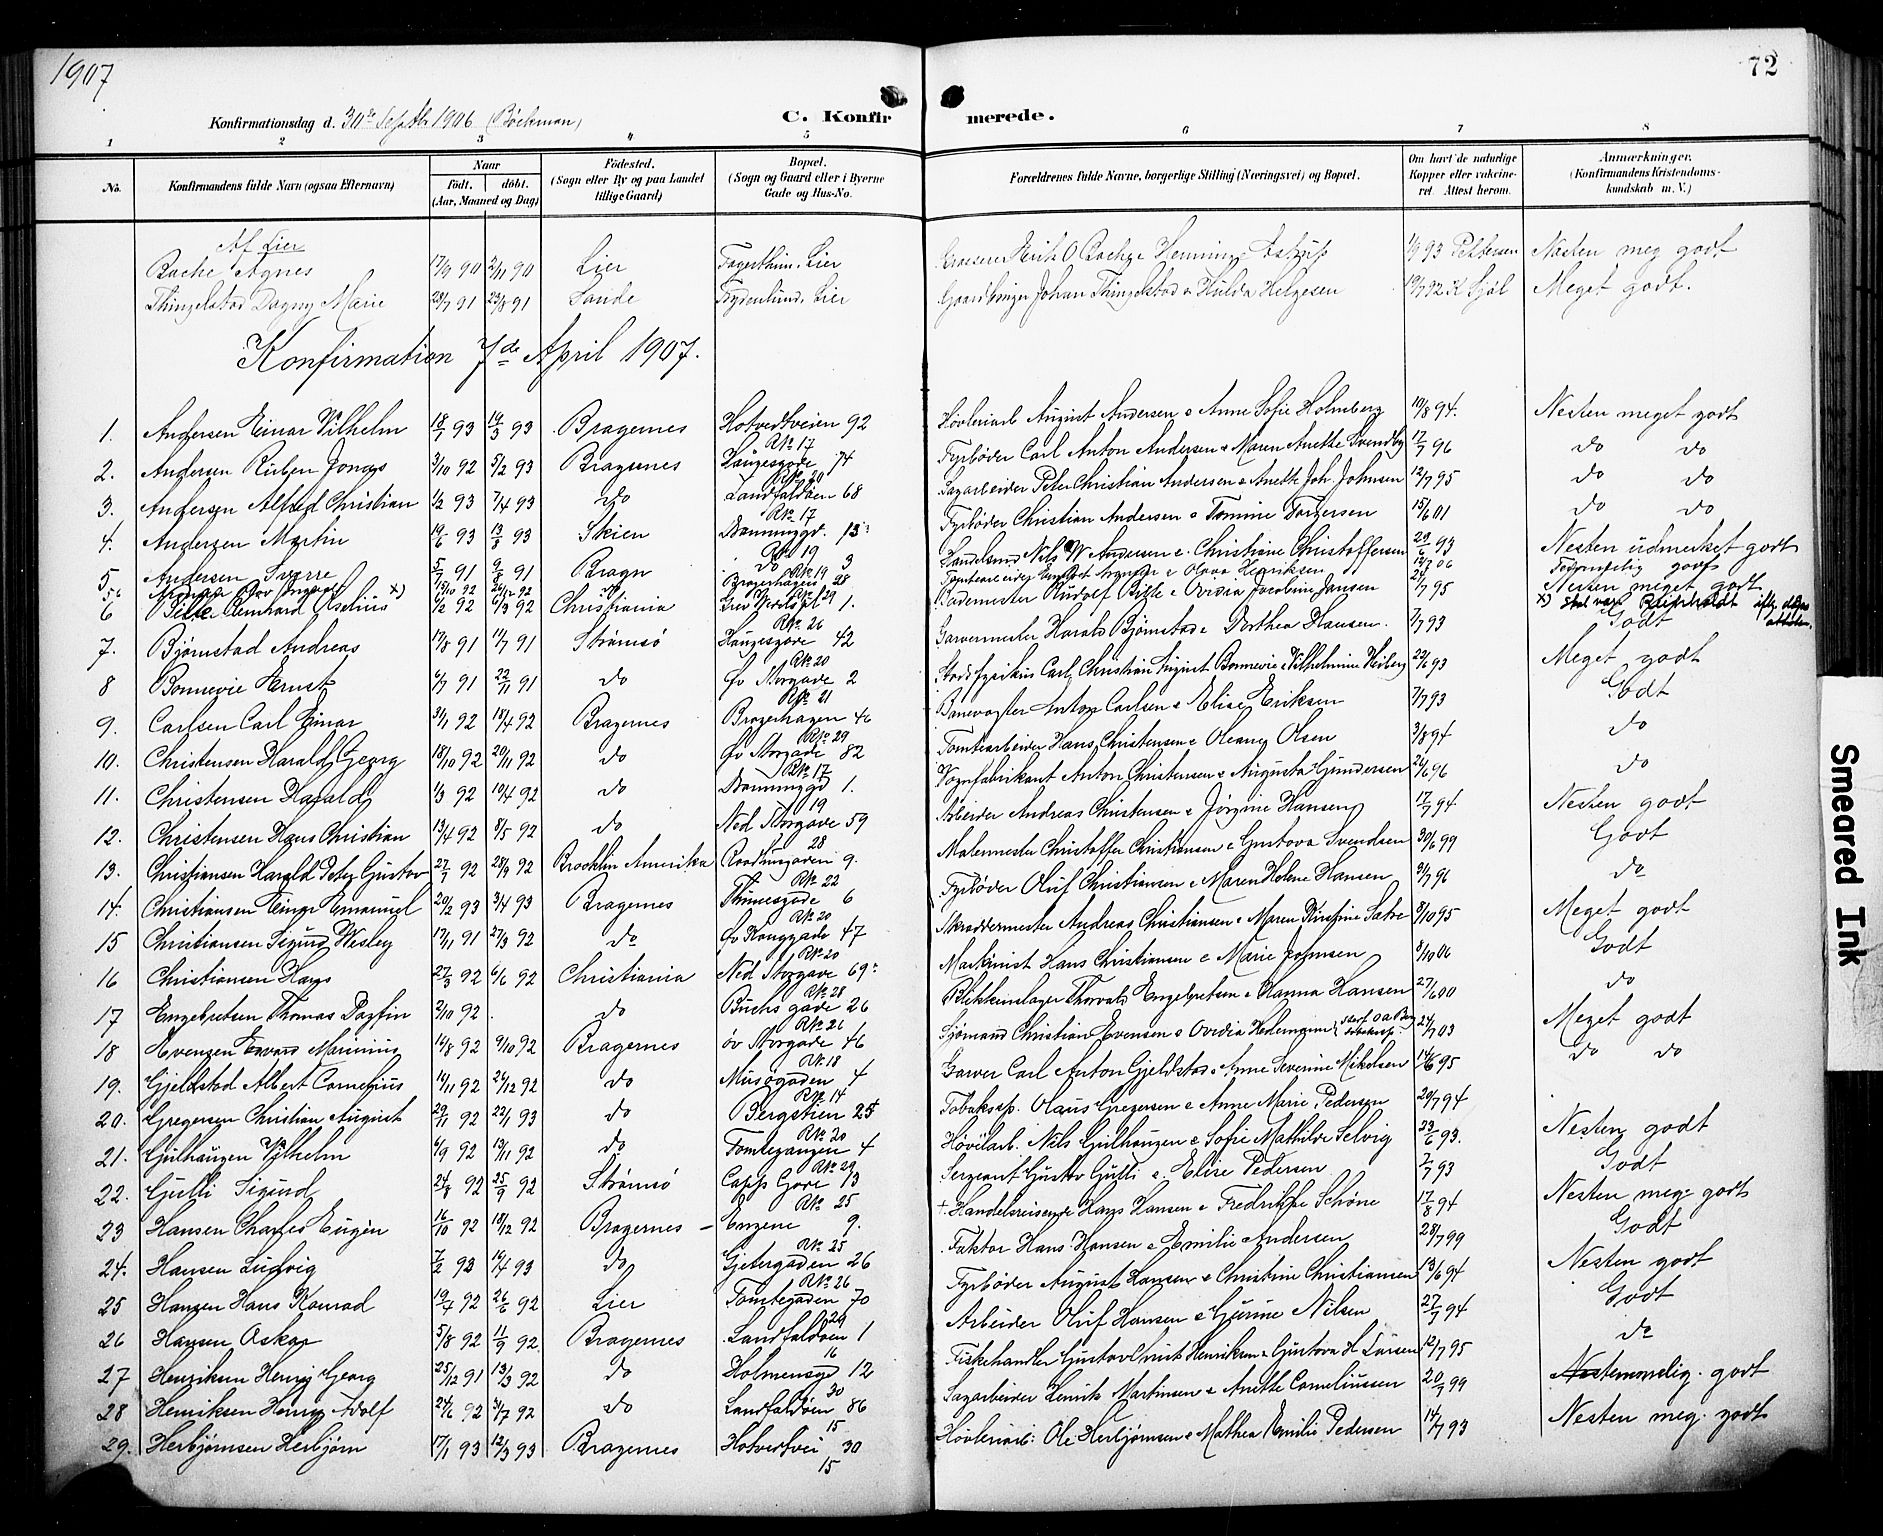 1907
72
Konfirmationsdag d. 30te Septbr 1906 (Böckman)
C. Konfirmerede.
1 2 3 4 5 6 7 8
No. Konfirmandens fulde Navn (ogsaa Efternavn) Naar født. døbt. (Aar, Maaned og Dag) Fødested. (Sogn eller By og paa Landet tillige Gaard) Bopæl. (Sogn og Gaard eller i Byerne Gade og Hus-No. Forældrenes fulde Navne, borgerlige Stilling (Næringsvei) og Bopæl. Om havt de naturlige Kopper eller vakcineret. Attest herom. Anmærkninger. (Konfirmandens Kristendomskundskab m. V.)
Af Lier
Bache Agnes 17/9 90 2/11 90 Lier Lier Nesten meg godt
Thingelstad Dagny Marie 28/7 91 23/8 91 Sande Frydenlund, Lier Gaardbruger Johan Thingelstad & Hulda Helgesen Meget godt.
Konfirmation 7de April 1907.
1. Andersen Einar Vilhelm 18/1 93 19/3 93 Bragernes Hotvedtveien 92 Høvleriarb August Andersen & Anne Sofie Holmberg 10/8 94. Nesten meget godt
Rk. 17
2. Andersen Ruben Jonas 3/10 92 5/2 93 Bragernes Haugesgade 74 Fyrbøder Carl Anton Andersen & Maren Anette Svendby 17/7 96 do do
Rk 20
3. Andersen Alfred Christian 1/2 93 7/4 93 do Landfaldøen 68 Sagarbeider Peter Christian Andersen & Anette Joh. Johnsen 12/7 95 do do
Rk. 17
4. Andersen Martin 19/6 93 13/8 93 Skien 13 Fyrbøder Christian Andersen & Tomine Torgersen 15/6 01 do do
Rk 19
5 Andersen Sverre 5/7 91 9/8 91 Bragn do 3 Handelsmd Nils W Andersen & Christiane Christoffersen 29/6 93 Nesten udmerket godt
Rk. 19
Bragerhagen 28
6 Bille Reinhard Aselius 92 92 Christiania 1. Bademester Rudolf Bille & Ovidia Jacobine Jansen 7 95 Nesten meget godt
Rk. 26
7. Bjørnstad Andreas 17/5 91 19/7 91 Strømsø Haugesgade 42 Garvermester Harald Bjørnstad & Dorthea Hansen. 7/7 93 Godt
Rk. 20
8 Bonnevie Ernst 6/7 91 22/11 91 do Øv Storgade 2 Stadsfysikus Carl Christian August Bonnevie & Vilhelmine Heiberg 22/6 93 Meget godt
Rk. 21
9. Carlsen Carl Einar 3/1 92 18/4 92 Bragernes Bragerhagen 46 Banevogter Anton Carlsen & Elise Eriksen 7/7 93 Godt
Rk. 29
10. Christensen Harald Georg 18/10 92 20/11 92 do Øv Storgade 82 Tomtearbeider Hans Christensen & Oleany Olsen 3/8 94 do
Rk. 17
11. Christensen Harald 1/3 92 10/4 92 do 1. Vognfabrikant Anton Christensen & Augusta Gundersen 26/6 96 do
19
12. Christensen Hans Christian 13/4 92 8/5 92 do Ned Storgade 59 Arbeider Andreas Christensen & Jørgine Hansen 17/7 94 Nesten godt
28
13. Christiansen Harald Peter Gustav 27/7 92 28/9 92 Brooklin Amerika Raadhusgaden 9. Malermester Christoffer Christiansen & Gustava Svendsen 30/6 99 Godt
Rk. 22
14. Christiansen Einar Emanuel 20/2 93 3/4 93 Bragernes Thinesgade 6 Fyrbøder Oluf Christiansen & Maren Helene Hansen 3/7 96 do
Rk. 20
15 Christiansen Sigurd Wesley 17/11 91 27/3 92 do Øv Konggade 47 Skræddermester Andreas Christiansen & Maren Kirstine Sætre 8/10 95 Meget godt
Rk. 20
16 Christiansen Hans 27/3 92 6/6 92 Christiania Ned Storgade 69 Maskinist Hans Christiansen & Marie Johnsen 8/10 06 Godt
Rk. 28
17 Engebretsen Thomas Dagfin 2/10 92 do Buchs gade 26 Blikkenslager Thorvald Engebretsen & Hanna Hansen 27/6 00 do
Rk. 26
18 Evensen Edvard Marinius 14/8 92 9/10 92 Bragernes Øv Storgade 46 Sjømand Christian Evensen & Ovidia 24/7 03 Meget godt
Rk. 18
19. Gjeldstad Albert Cornelius 14/11 92 26/12 92 do Musøgaden 4 Garver Carl Anton Gjeldstad & Anne Severine Mikelsen 14/6 95 do do
Rk 14
20. Gregersen Christian August 29/11 92 22/1 93 do Bergstien 25 Tobakssp. Olaus Gregersen & Anne Marie Pedersen 20/7 94
Rk. 20
21. Gulhaugen Vilhelm 6/9 92 13/11 92 do Tomtegangen 4 Høvilarb. Nils Gulhaugen & Sofie Mathilde Selvig 23/6 93. Nesten godt
Rk. 29
22. Gulli Sigurd 24/8 92 25/9 92 Strømsø Capp. Gade 13 Sergeant Gustav Gulli & Elise Pedersen 7/7 93 Godt
Rk. 25
23 Hansen Charles Eugen 16/10 92 18/12 92 Bragernes Engene 9. Handelsreisende Hans Hansen & Fredrikke Schøne 17/8 94 Nesten meg godt
Rk. 25
24. Hansen Ludvig 7/2 93 14/4 93 do Gjetergaden 26 Faktor Hans Hansen & Emilie Andersen 28/7 99 Godt
Rk. 26
25 Hansen Hans Konrad 19/4 92 26/6 92 Lier Tomtegaden 70 Fyrbøder August Hansen & Christine Christiansen 13/6 94 Nesten godt
29
26 Hansen Oskar 5/8 92 11/9 92 Bragernes Landfaldøen 1 Arbeider Oluf Hansen & Gurine Nilsen 27/7 94 Godt
16
27 Henriksen Henry Georg 25/12 91 13/3 92 do Holmensgd 12 Fiskehandler Gustav Henriksen & Gustava H Larsen 12/7 95 do
30
28 Henriksen Henry Adolf 24/6 92 31/7 92 do Landfaldøen 86 Sagarbeider Henrik Martinsen & Anette Corneliussen 20/9 99 godt
15
29. Herbjørnsen Herbjørn 17/1 93 12/3 93 Bragernes Hotvedtvei 30 Høvleriarb. Ole Herbjørnsen & Mathea Emilie Pedersen 14/7 93 Nesten meg. godt
15
Smeared Ink